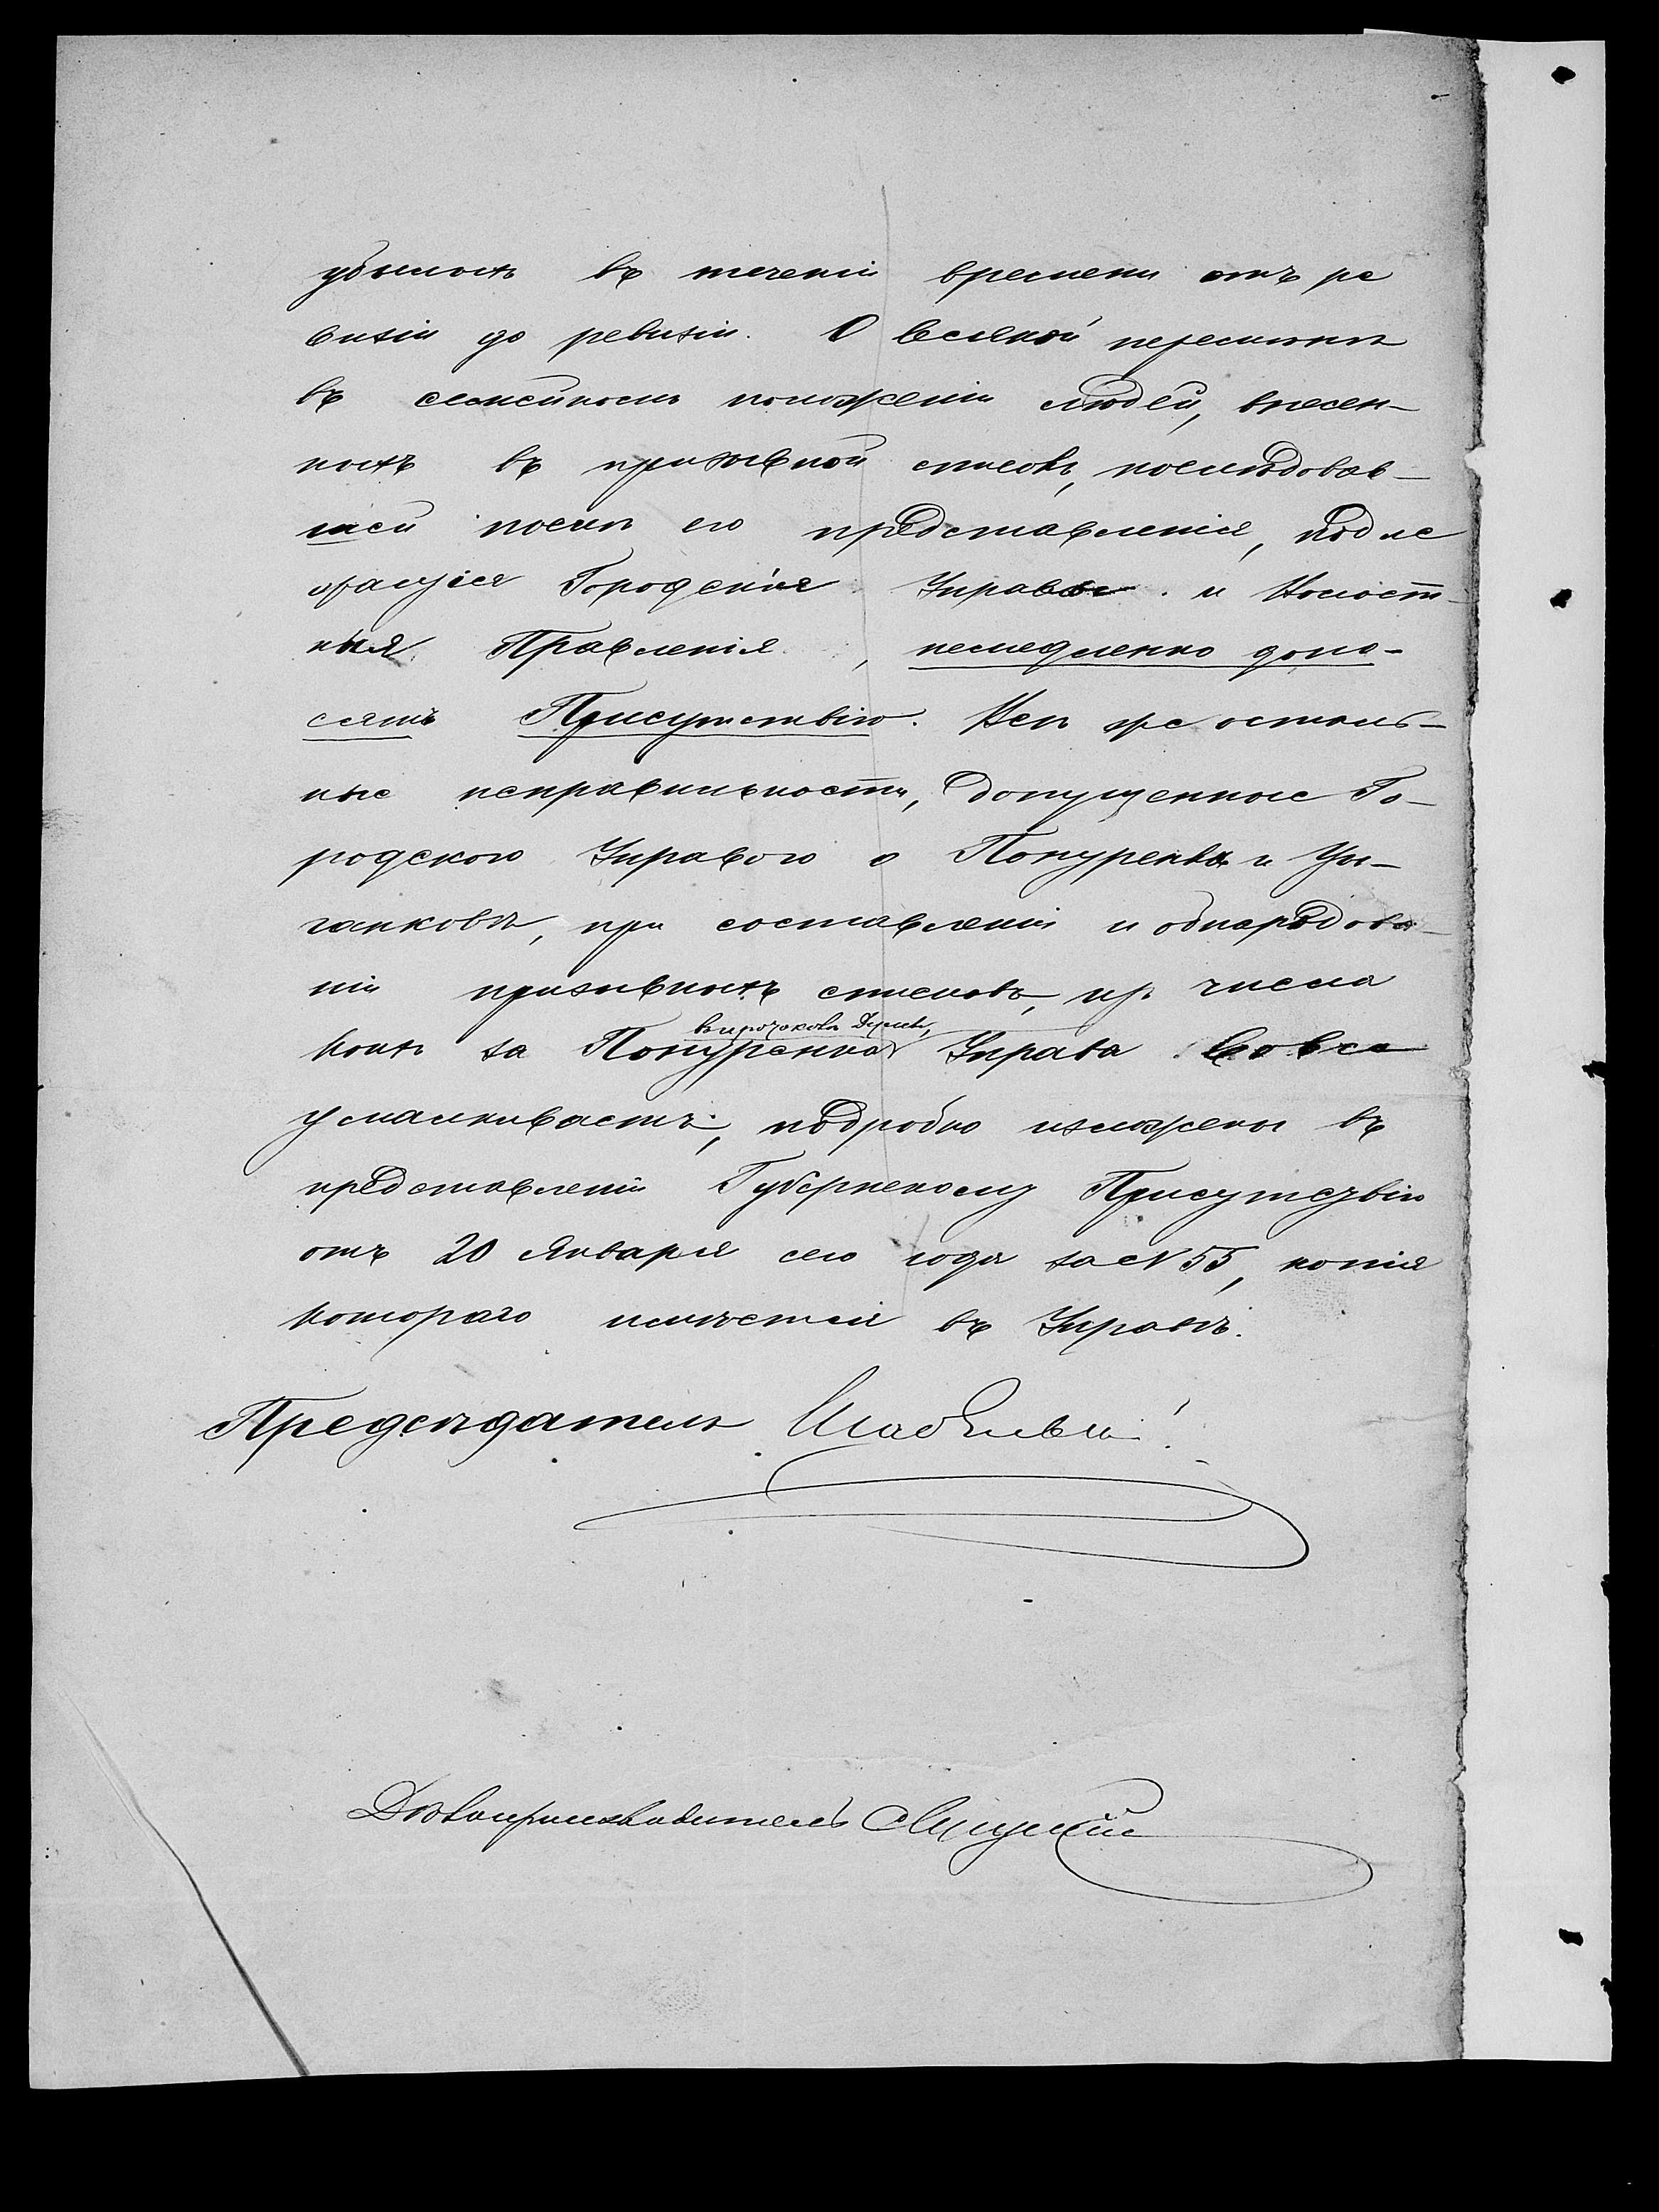 убылыхъ въ теченіи времени отъ ре
визіи до ревизіи. О всякой перемѣнѣ
въ семейномъ положеніи людей, внесен-
ныхъ въ призывной списокъ, послѣдовав-
шей послѣ его представленія, подле
жащія Городскія Управы и Волост-
ныя Правленія, немедленно доно-
сятъ Присутствію. Всѣ же осталь-
ные неправильности, допущенные Го-
родскою Управою о Попуренкѣ и Цы-
ганковѣ, при составленіи и обнародова-
ніи призывныхъ списковъ, изъ числа
коихъ за Попуренка Управа вовсе
умалкиваетъ, подробно изложены въ
представленіи Губернскому Присутствію
отъ 20 Января сего года за № 55, копія
котораго имѣется въ Управѣ.
Предсѣдатель
Дѣлопроизводитель